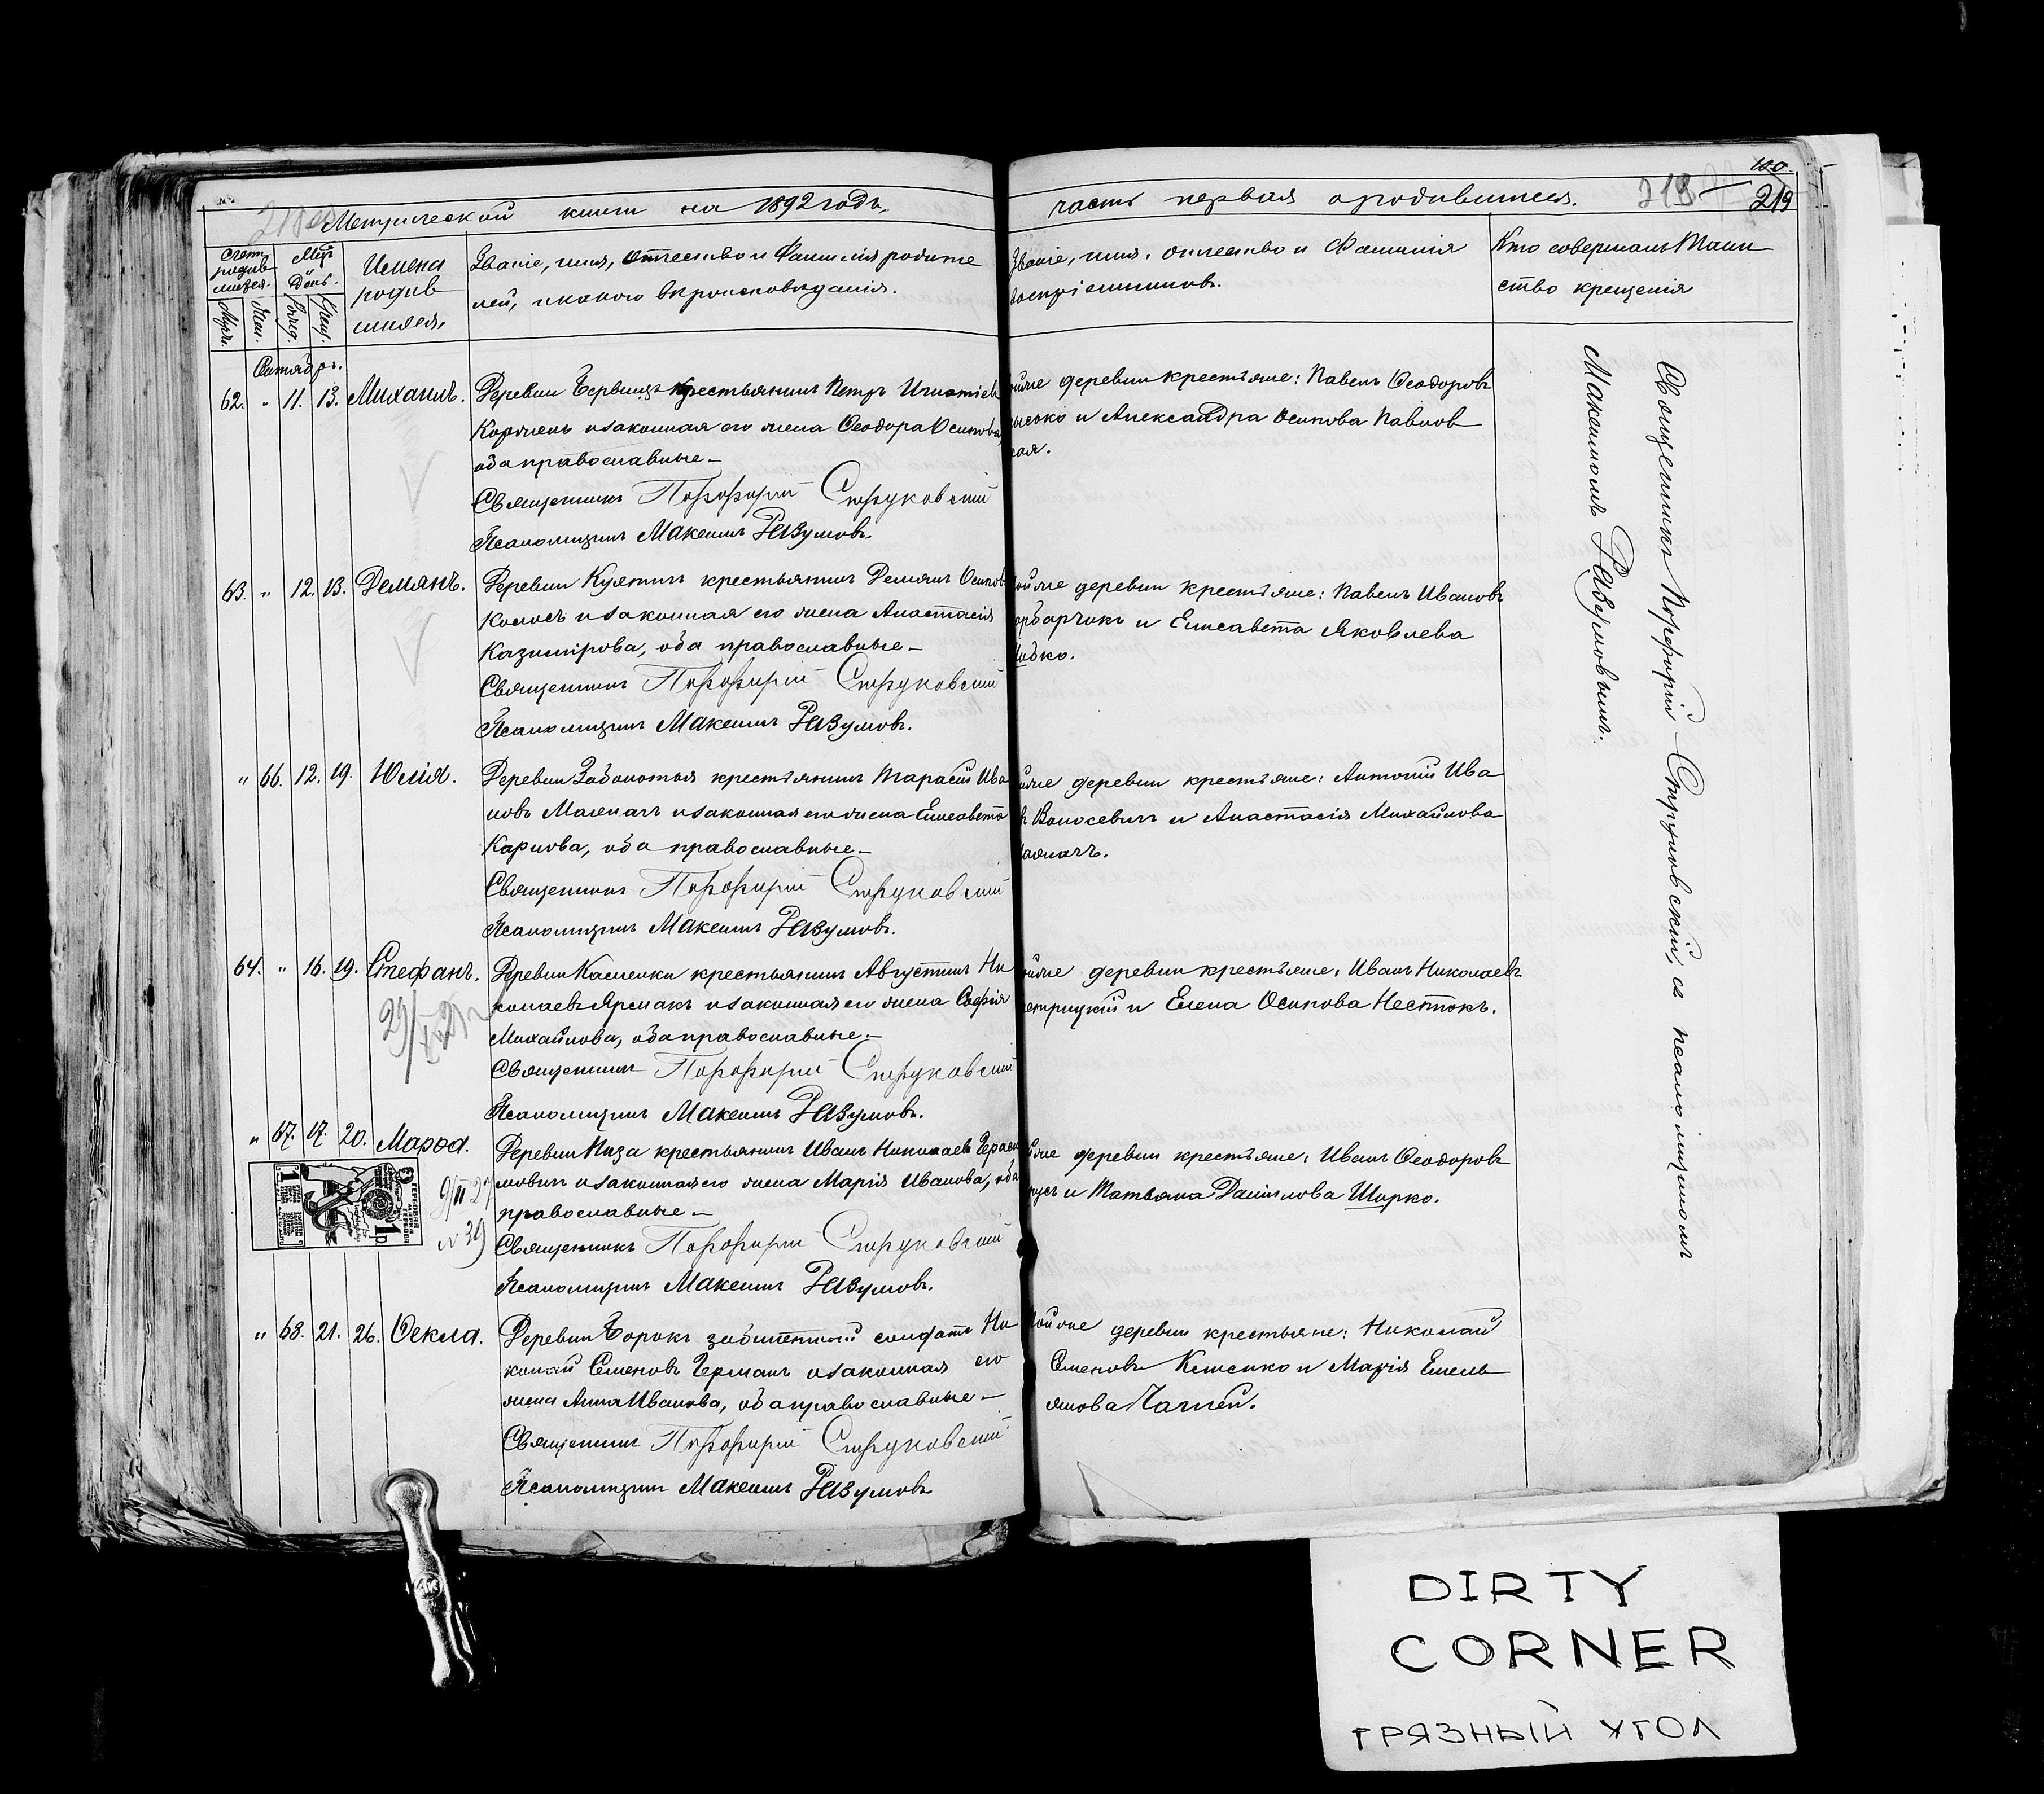 Метрической книги на 1892 годъ,
часть первая о родившихся. 218 219
Счетъ родив шихся. Мѣц День. Имена родив шихся, Званіе, имя, отчество и Фамилія родите
лей, и какого вѣроисповѣданія.
Званіе, имя, отчество и Фамилія
воспріемниковъ.
Кто совершалъ Таин
ство крещенія
Муж. Жен. Рожд. Крещ.
Сентябрь.
62. " 11. 13. Михаилъ. Деревни крестьянинъ Петръ Игнатіевъ
и законная его жена Ѳеодора Осипова,
оба православные —
Священникъ Порфирій Струковскій
Псаломщикъ Максимъ Разумовъ.
деревни крестьяне: Павелъ Ѳеодоровъ
и Александра Осипова Павлов
ская.
63. " 12. 13. Демянъ. Деревни крестьянинъ Демянъ Осиповъ
Колосъ и законная его жена Анастасія
Казимірова, оба православные —
Священникъ Порфирій Струковскій
Псаломщикъ Максимъ Разумовъ.
деревни крестьяне: Павелъ Ивановъ
и Елисавета Яковлева
" 66. 12. 19. Юлія. Деревни Заболотья крестьянинъ Тарасій Ива
новъ и законная его жена Елисавета
Карпова, оба православные —
Священникъ Порфирій Струковскій
Псаломщикъ Максимъ Разумовъ.
деревни крестьяне: Антоній Ива
Волосевичъ и Анастасія Михайлова
64. " 16. 19. Стефанъ. Деревни Каменки крестьянинъ Августинъ Ни
колаевъ Ярмакъ и законная его жена Софія
Михайлова, оба православные —
Священникъ Порфирій Струковскій
Псаломщикъ Максимъ Разумовъ.
деревни крестьяне: Иванъ Николаевъ
и Елена Осипова Нестюкъ.
" 67. 17. 20. Марѳа. Деревни крестьянинъ Иванъ Николаевъ Гераси
мовичъ и законная его жена Марія Иванова, оба
православные —
Священникъ Порфирій Струковскій
Псаломщикъ Максимъ Разумовъ.
деревни крестьяне: Иванъ Ѳеодоровъ
и Татьяна Даніилова Ширко.
9/II 27
N 39
" 68. 21. 26. Ѳекла. Деревни Борокъ забилетный солдатъ Ни
колай Семеновъ Германъ и законная его
жена Анна Иванова, оба православные —
Священникъ Порфирій Струковскій
Псаломщикъ Максимъ Разумовъ
Той же деревни крестьяне: Николай
Семеновъ и Марія Емель
янова
Священникъ Порфирій Струковскій, съ псаломщикомъ
Максимомъ Разумовымъ.
DIRTY
CORNER
ГРЯЗНЫЙ УГОЛ